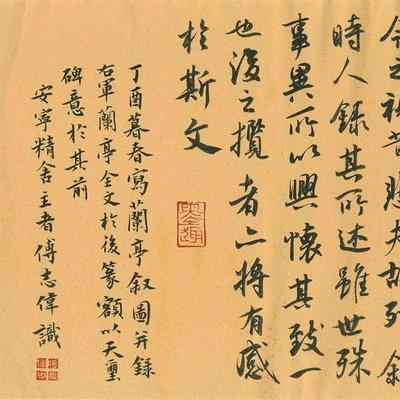 今之視昔悲夫故列敘
時人錄其所述雖世殊
事異所以興懷其致一
也後之攬者亦將有感
於斯文
丁酉暮春寫蘭亭敘圖并錄
右軍蘭亭全文於後篆額以天璽
碑意於其前
安寧精舍主者傅志偉識